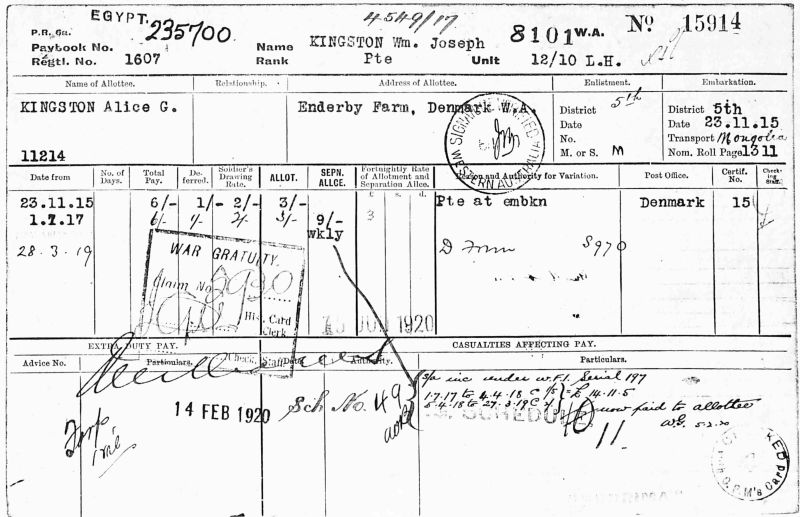 EGYPT.
4549/17
P.R. 6a. 235700
8101 W.A. No 15914
Paybook No.
Name KINGSTON Wm. Joseph
Regtl. No. 1607
Rank Pte Unit 12/10 L.H.
Name of Allottee. Relationship. Address of Allottee. Enlistment. Embarkation.
KINGSTON Alice G. Enderby Farm, Denmark W.A.
District 5th District 5th
Date Date 23.11.15
No. Transport Mongolia
11214 M. or S. M Nom. Roll Page 1311
WESTERN AUSTRALIA
Date from No. of Days. Total Pay. Deferred. Soldier's Drawing Rate. ALLOT. SEPN. ALLCE. Fortnightly Rate of Allotment and Separation Allce. Reason and Authority for Variation. Post Office. Certif. No. Checking Staff.
£ s. d.
23.11.15 6/- 1/- 2/- 3/- Pte at embkn Denmark 15
1.7.17 6/- 1/- 2/- 3/- 9/- 3
wkly
28.3.19 S970
WAR GRATUITY.
Claim No. 5930
Hist. Card
Clerk
JUN 1920
EXTRA DUTY PAY. CASUALTIES AFFECTING PAY.
Advice No. Particulars. Date Authority. Particulars.
14 FEB 1920 Sch No. 49
s/a inc under W.F.I. Serial 197
1.7.17 to 4.4.18 = £ 14.11.5
5.4.18 to 27.3.19
now paid to allottee
5.2.20
SCHEDULE
11.